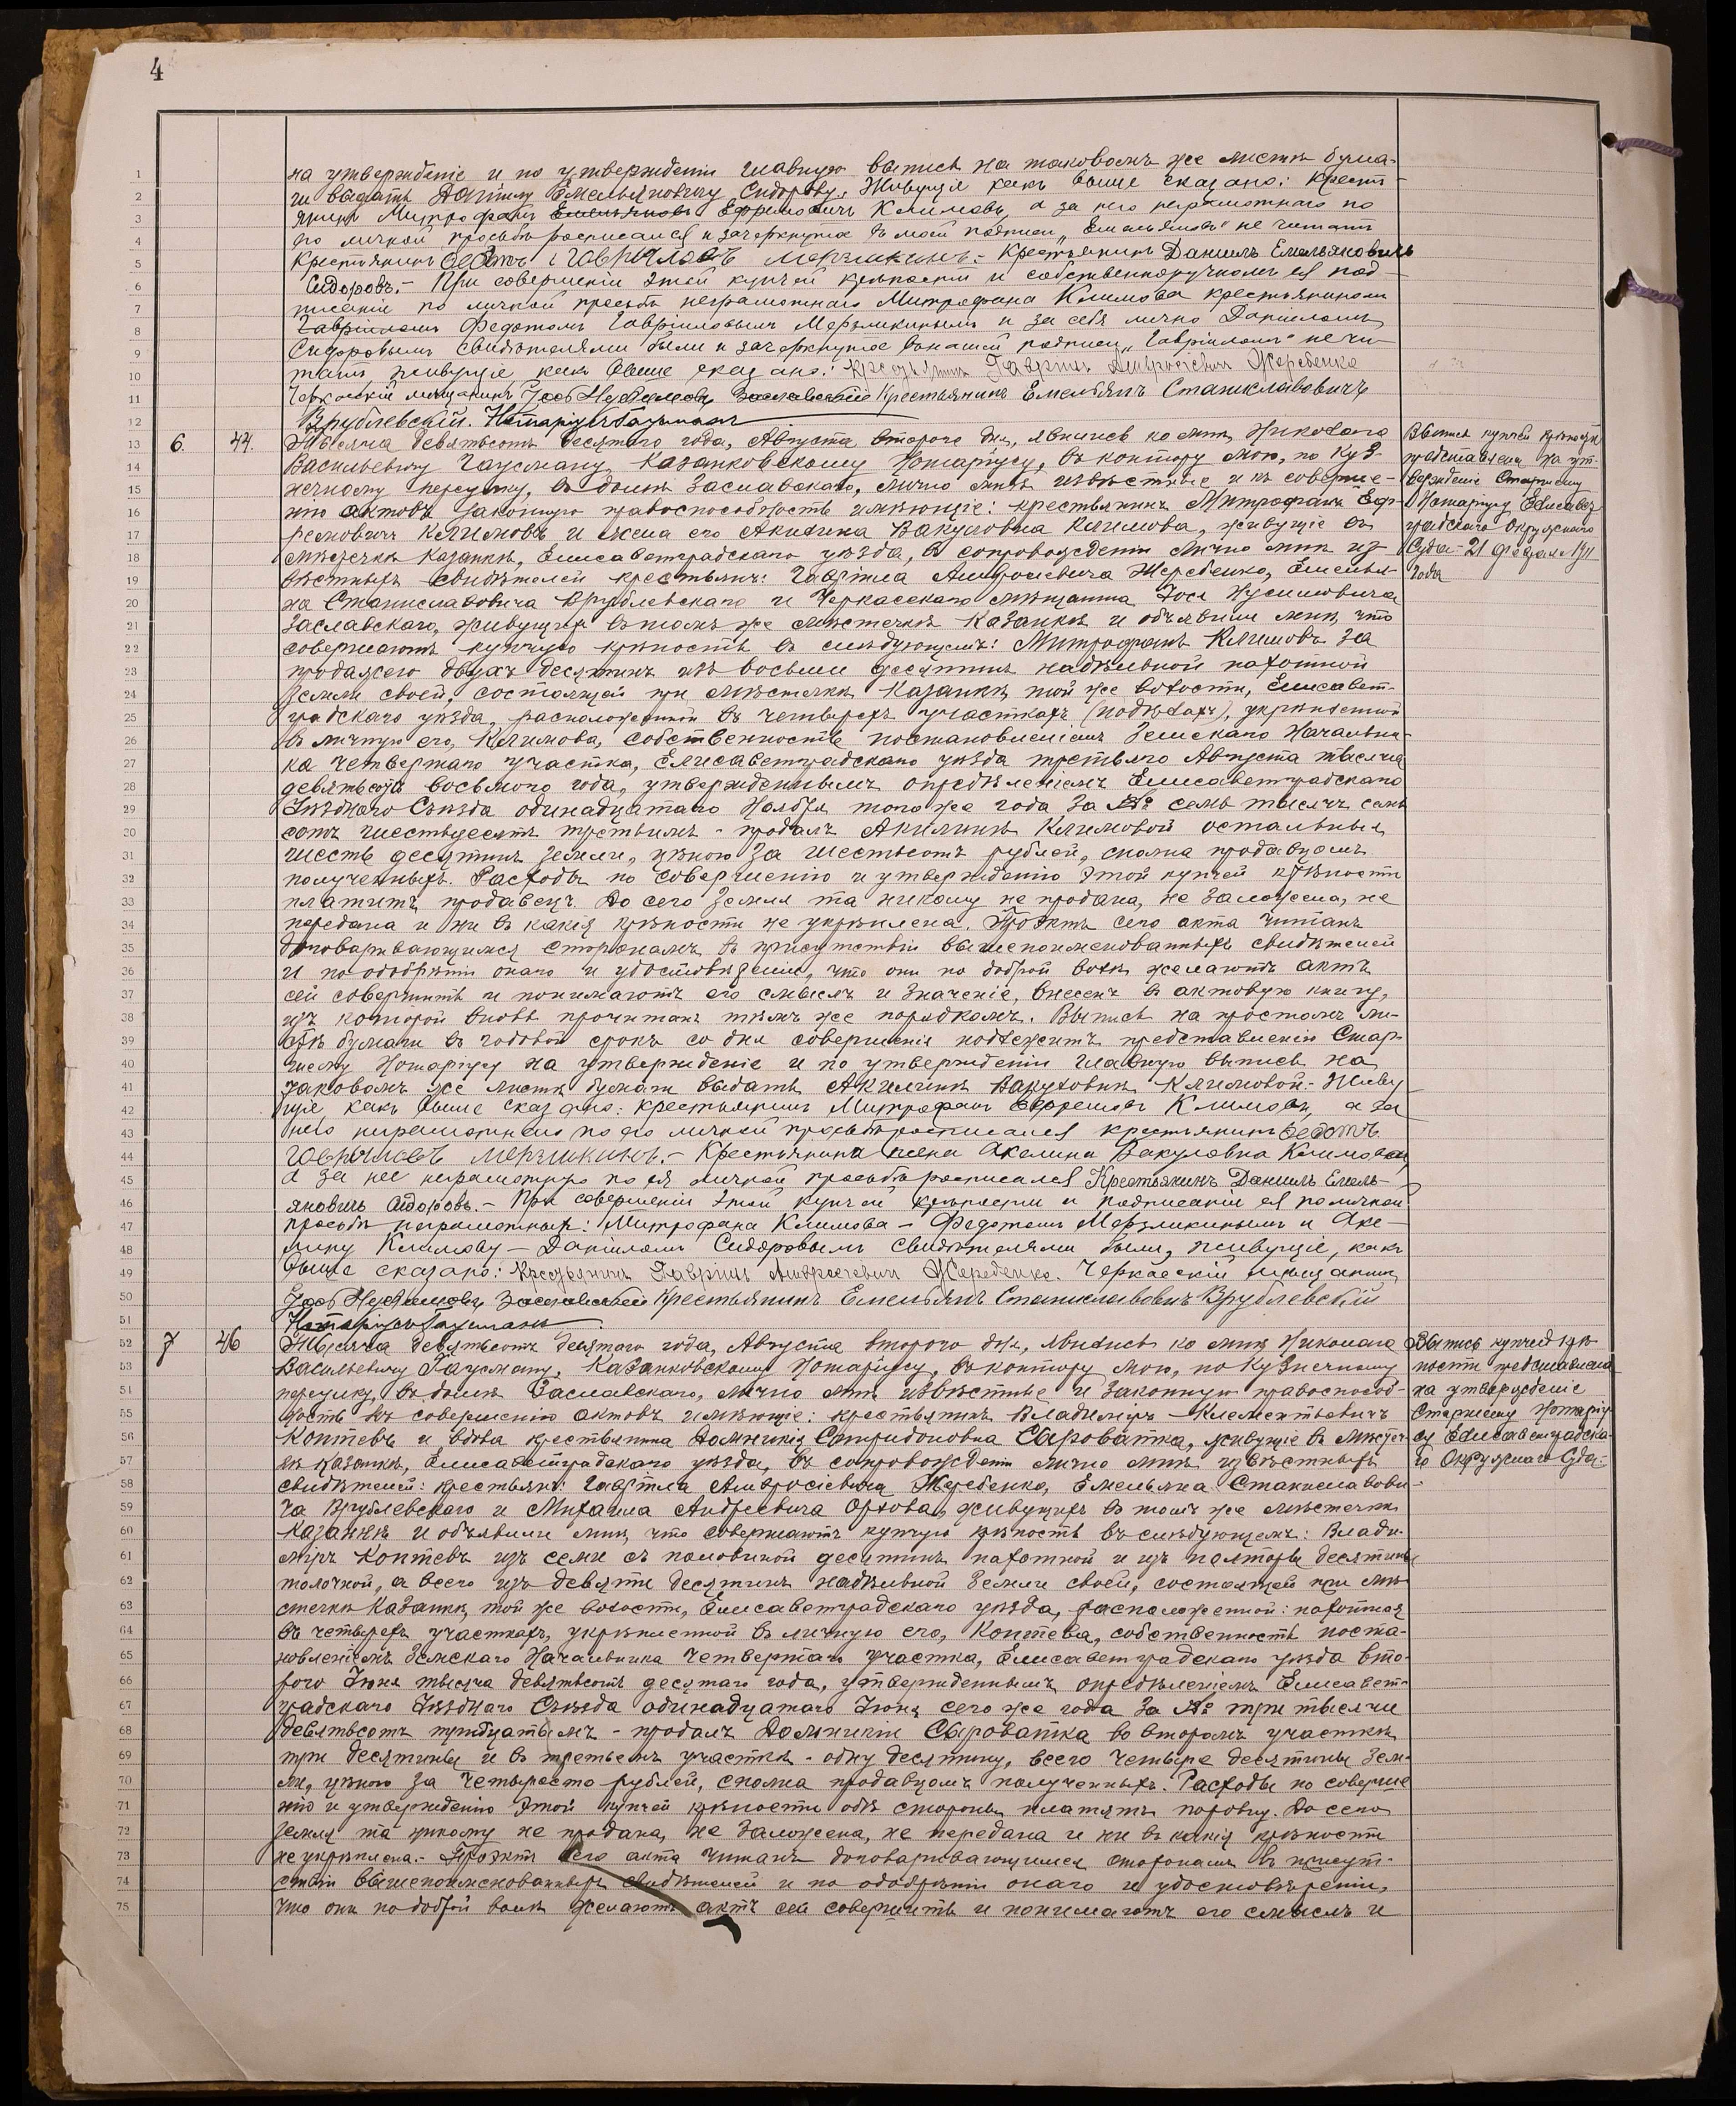 4
1 на утвержденіе и по утвержденіи главную выпись на таковомъ же листѣ бума-
2 ги выдать Даніилу Емельяновичу Сидорову. Живущіе какъ выше сказано: Кресть-
3 янинъ Митрофанъ Емельяновъ Ефремовичъ Климовъ, а за него неграмотнаго по
4 его личной просьбѣ росписался и зачеркнутое въ моей подписи „Емельяновъ" не читать
5 Крестьянинъ Федотъ Гавриловъ Мерзликинъ.- Крестьянинъ Даниилъ Емельяновичъ
6 Сидоровъ.- При совершеніи этой купчей крѣпости и собственноручномъ ея под-
7 писаніи по личной просьбѣ неграмотнаго Митрофана Климова крестьяниномъ
8 Гавріиломъ Федотомъ Гавриіловымъ Мерзликинымъ и за себя лично Даніиломъ
9 Сидоровымъ свидѣтелями были и зачеркнутое въ нашей подписи „Гавріиломъ" не чи-
10 тать живущіе какъ выше сказано: Крестьянинъ Гавріилъ Амвросіевич Жеребенко
11 Черкасскій мѣщанинъ Заславскій Крестьянинъ Емельянъ Станиславовичъ
12 Врублевскій. Нотаріусъ Гаусманъ
13 6. 44. Тысяча девятьсотъ десятаго года, Августа второго дня, явились ко мнѣ, Николаю
14 Васильевичу Гаусману, Казанковскому Нотаріусу, въ контору мою, по Куз-
15 нечному переулку, въ домѣ Заславскаго, лично мнѣ извѣстные и къ соверше-
16 нію актовъ законную правоспособность имѣющіе: крестьянинъ Митрофанъ Еф-
17 ремовичъ Климовъ и жена его Акилина Вакуловна Климова, живущіе въ
18 мѣстечкѣ Казанкѣ, Елисаветградскаго уѣзда, въ сопровожденіи лично мнѣ из-
19 вѣстныхъ свидѣтелей крестьянъ: Гавріила Амвросіевича Жеребенко, Емелья-
20 на Станиславовича Врублевскаго и Черкасскаго мѣщанина Іося Нусимовича
21 Заславскаго, живущихъ въ томъ же мѣстечкѣ Казанкѣ и объявили мнѣ, что
22 совершаютъ купчую крѣпость въ слѣдующемъ: Митрофанъ Климовъ за
23 продажею двухъ десятинъ изъ восьми десятинъ надѣльной пахотной
24 земли своей, состоящей при мѣстечкѣ Казанкѣ, той же волости, Елисавет-
25 градскаго уѣзда, расположенной въ четырехъ участкахъ (подѣлахъ), укрѣпленной
26 въ личную его, Климова, собственность постановленіемъ Земскаго Начальни-
27 ка четвертаго участка, Елисаветградскаго уѣзда третьяго Августа тысяча
28 девятьсотъ восьмого года, утвержденнымъ опредѣленіемъ Елисаветградскаго
29 Уѣзднаго Съѣзда одинадцатаго Ноября того же года за № семь тысячъ семь
30 сотъ шестьдесятъ третьимъ - продалъ Акилинѣ Климовой остальныя
31 шесть десятинъ земли, цѣною за шестьсотъ рублей, сполна продавцомъ
32 полученныхъ. Расходы по совершенію и утвержденію этой купчей крѣпости
33 платитъ продавецъ. До сего земля та никому не продана, не заложена, не
34 передана и ни въ какія крѣпости не укрѣплена. Проэктъ сего акта читанъ
35 договаривающимся сторонамъ, въ присутствіи вышепоименованныхъ свидѣтелей
36 и по одобреніи онаго и удостовѣреніи, что они по доброй волѣ желаютъ актъ
37 сей совершить и понимаютъ его смыслъ и значеніе, внесенъ въ актовую книгу,
38 изъ которой вновь прочитанъ тѣмъ же порядкомъ. Выпись на простомъ ли-
39 стѣ бумаги въ годовой срокъ со дня совершенія подлежитъ представленію Стар-
40 шему Нотаріусу на утвержденіе и по утвержденіи главную выпись на
41 таковомъ же листѣ бумаги выдать Акилинѣ Вакуловнѣ Климовой.- Живу
42 щіе какъ выше сказано: крестьянинъ Митрофанъ Ефремовъ Климовъ, а за
43 него неграмотнаго по его личной просьбѣ росписался крестьянинъ Федотъ
44 Гавриловъ Мерзликинъ.- Крестьянина жена Акелина Вакуловна Климова
45 а за нее неграмотную по ея личной просьбѣ росписался Крестьянинъ Даниилъ Емель-
46 яновичъ Сидоровъ.- При совершеніи этой купчей крѣпости и подписаніи ея по личной
47 просьбѣ неграмотныхъ: Митрофана Климова - Федотомъ Мерзликинымъ и Аке-
48 лину Климову - Даніиломъ Сидоровымъ свидѣтелями были, живущіе, какъ
49 выше сказано: Крестьянинъ Гавріилъ Амвросіевич Жеребенко. Черкасскій мѣщанинъ
50 Заславскій Крестьянинъ Емельянъ Станиславовичъ Врублевскій
51 Нотаріусъ Гаусманъ
Выпись купчей крѣпости
представлена на ут-
вержденіе Старшему
Нотаріусу Елисавет
градскаго Окружнаго
Суда - 21
года
52 7 46 Тысяча девятьсотъ десятаго года, Августа второго дня, явились ко мнѣ, Николаю
53 Васильевичу Гаусману, Казанковскому Нотаріусу, въ контору мою, по Кузнечному
54 переулку, въ домѣ Заславскаго, лично мнѣ извѣстные и законную правоспособ-
55 ность къ совершенію актовъ имѣющіе: крестьянинъ Владиміръ Клементьевичъ
56 Коптевъ и вдова крестьянина Домникія Спиридоновна Сыроватка, живущіе въ мѣстеч-
57 кѣ Казанкѣ, Елисаветградскаго уѣзда, въ сопровожденіи лично мнѣ извѣстныхъ
58 свидѣтелей: крестьянъ: Гавріила Амвросіевича Жеребенко, Емельяна Станиславови-
59 ча Врублевскаго и Михаила Андреевича Орлова, живущихъ въ томъ же мѣстечкѣ
60 Казанкѣ и объявили мнѣ, что совершаютъ купчую крѣпость въ слѣдующемъ: Влади-
61 міръ Коптевъ изъ семи съ половиной десятинъ пахотной и изъ полторы десятины
62 толочной, а всего изъ девяти десятинъ надѣльной земли своей, состоящей при мѣ-
63 стечкѣ Казанкѣ, той же волости, Елисаветградскаго уѣзда, расположенной: пахотная
64 въ четырехъ участкахъ, укрѣпленной въ личную его, Коптева, собственность поста-
65 новленіемъ Земскаго Начальника Четвертаго участка, Елисаветградскаго уѣзда вто-
66 рого Іюня тысяча девятьсотъ десятаго года, утвержденнымъ опредѣленіемъ Елисавет-
67 градскаго Уѣзднаго Съѣзда одинадцатаго Іюня сего же года за № три тысячи
68 девятьсотъ тридцатымъ - продалъ Домникіи Сыроватка во второмъ участкѣ
69 три десятины и въ третьемъ участкѣ - одну десятину, всего четыре десятины зем-
70 ли, цѣною за четыреста рублей, сполна продавцомъ полученныхъ. Расходы по соверше
71 нію и утвержденію этой купчей крѣпости обѣ стороны платятъ поровну. До сего
72 земля та никому не продана, не заложена, не передана и ни въ какія крѣпости
73 не укрѣплена.- Проэктъ сего акта читанъ договаривающимся сторонамъ въ присут-
74 ствіи вышепоименованныхъ свидѣтелей и по одобреніи онаго и удостовѣреніи,
75 что они по доброй волѣ желаютъ актъ сей совершить и понимаютъ его смыслъ и
Выпись купчей крѣ-
пости представлена
на утвержденіе
Старшему Нотаріу-
су Елисаветградска-
го Окружнаго Суда: